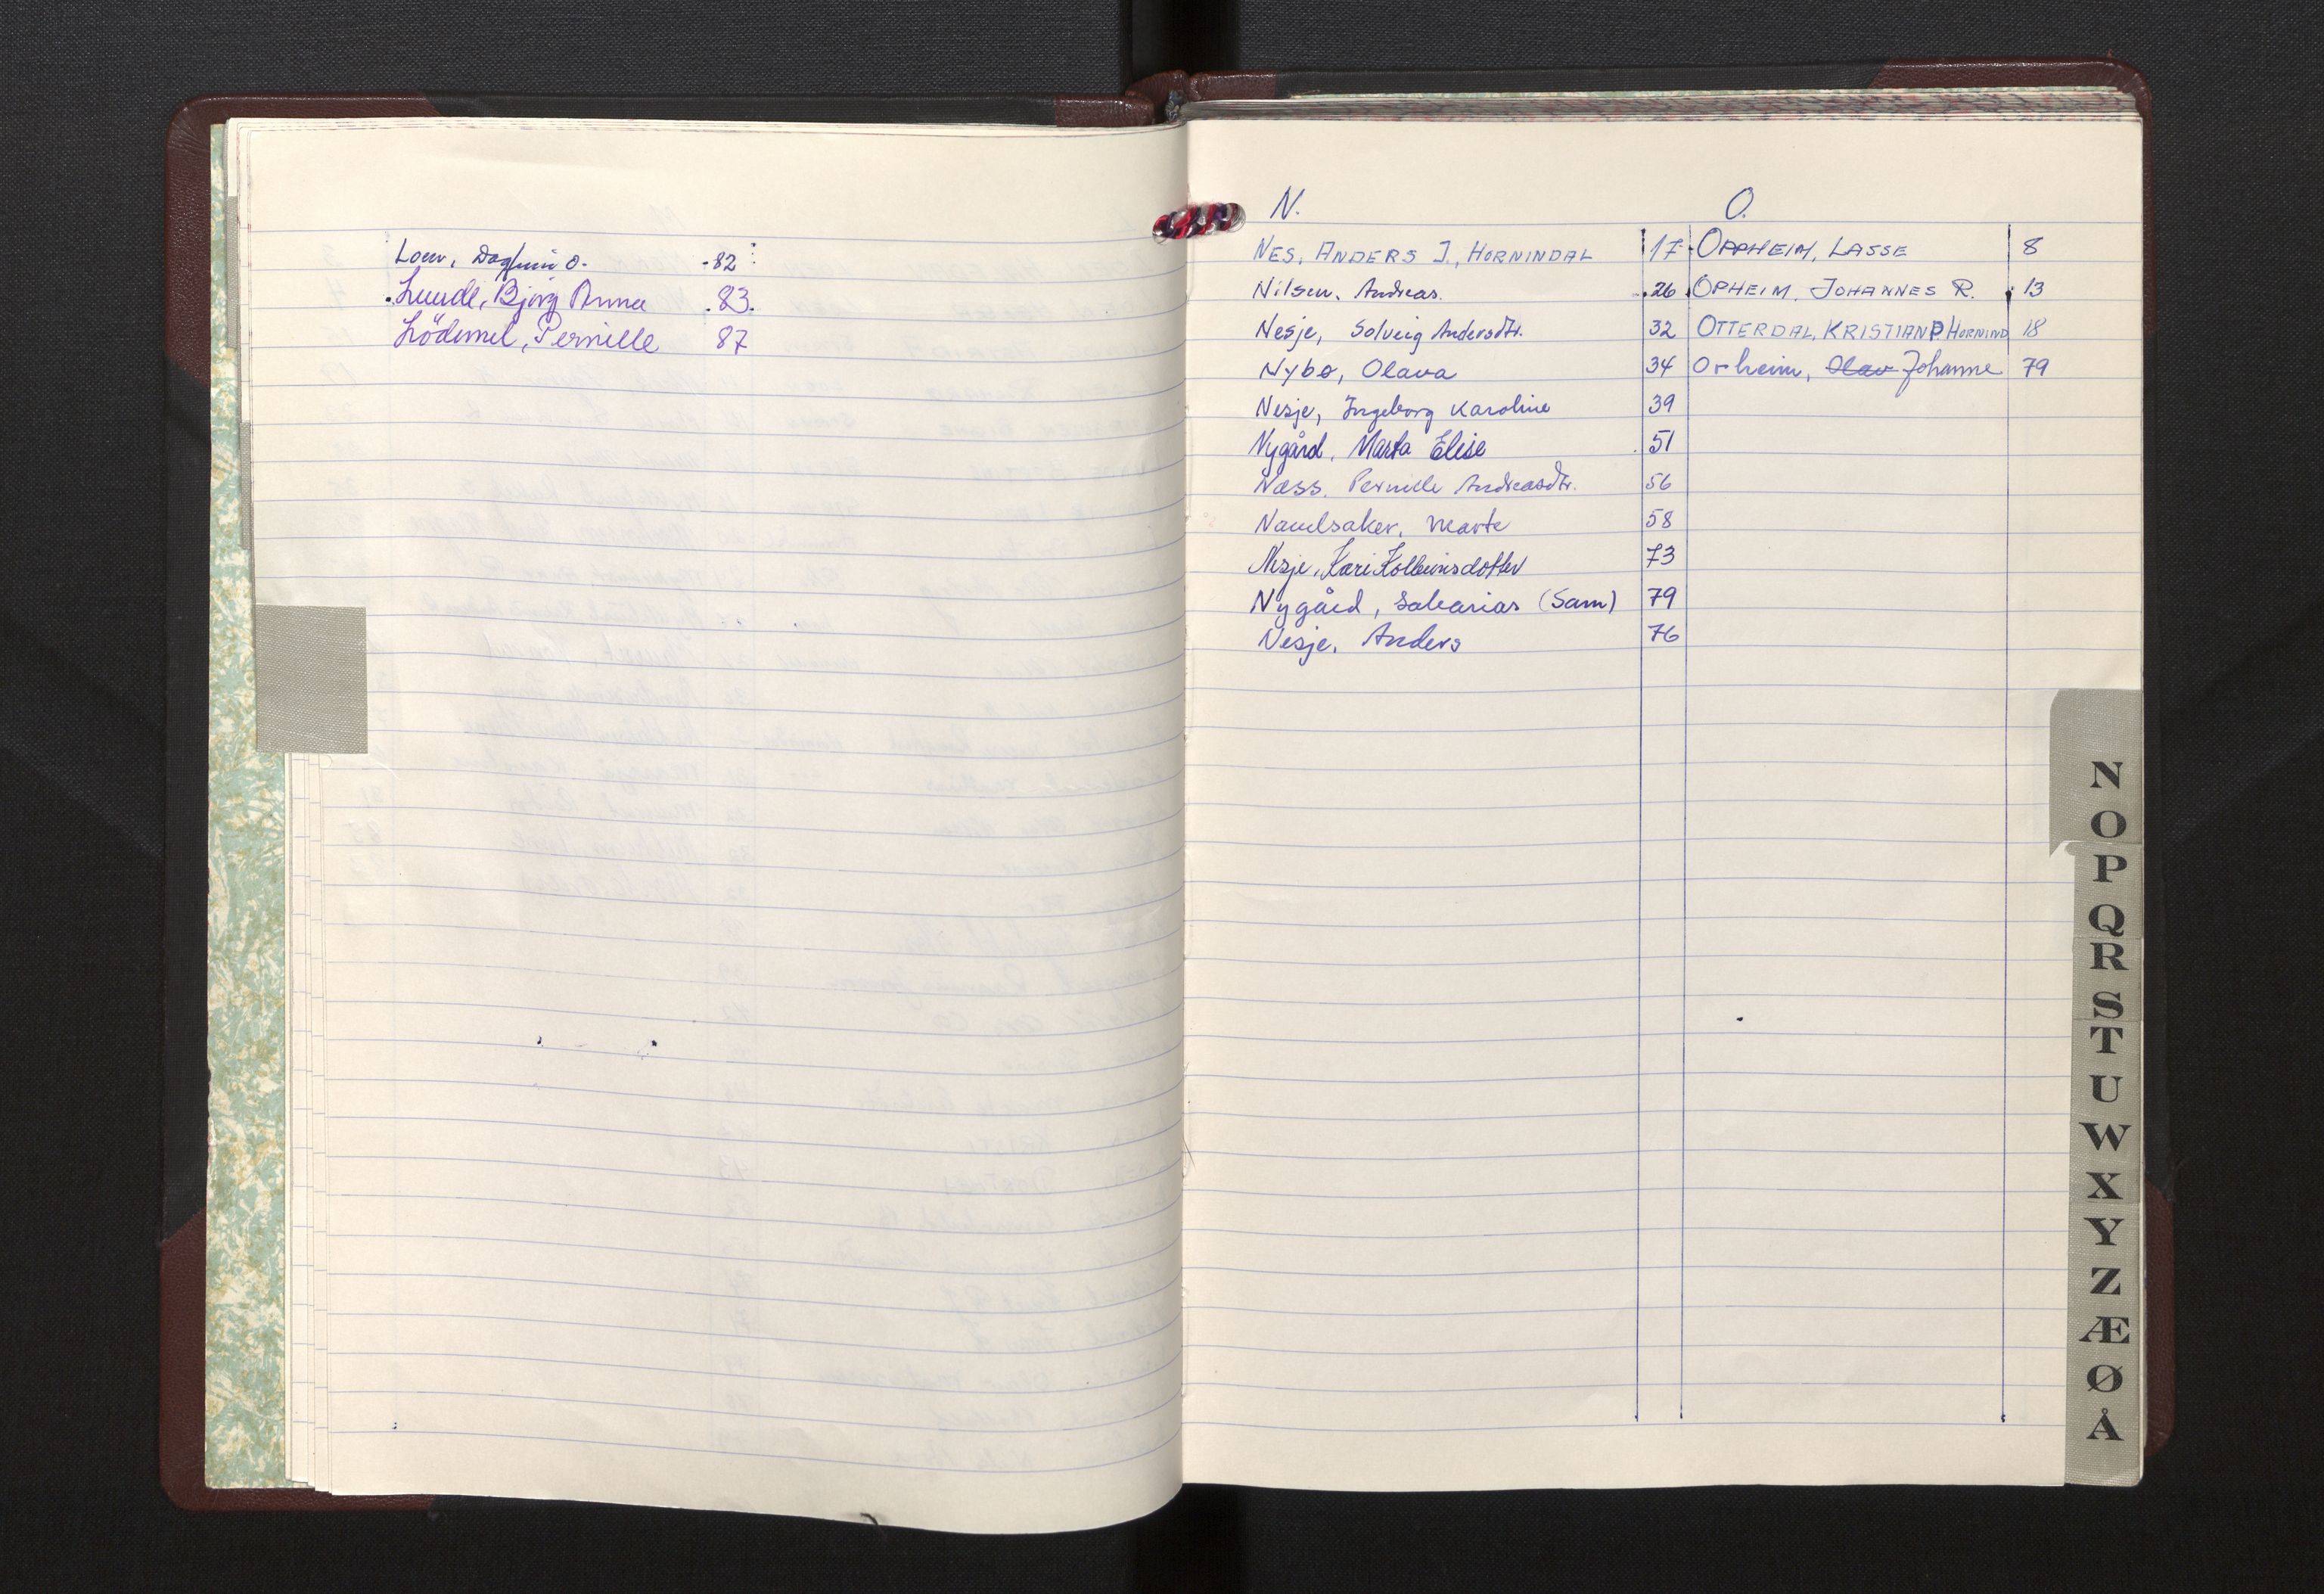 Loen, Dagfinn O. 82
Lunde, Bjørg Anna 83.
Lödemel, Pernille 87
N.
NES, ANDERS J., HORNINDAL 17
Nilsen, Andreas. 26
Nesje, Solveig Andersdtr. 32
Nybø, Olava 34
Nesje, Ingeborg Karoline 39
Nygård, Marta Elise 51
Næss, Pernille Andreasdtr. 56
Naustsaker, Marte 58
Nesje, Kari Kolbeinsdotter 73
Nygård, Sakarias (Sam) 79
Nesje, Anders 76
O.
OPPHEIM, LASSE 8
OPHEIM, JOHANNES R. 13
OTTERDAL, KRISTIAN P HORNIND 18
Orheim, Olav Johanne 79
N
O
P
Q
R
S
T
U
W
X
Y
Z
Æ
Ø
Å